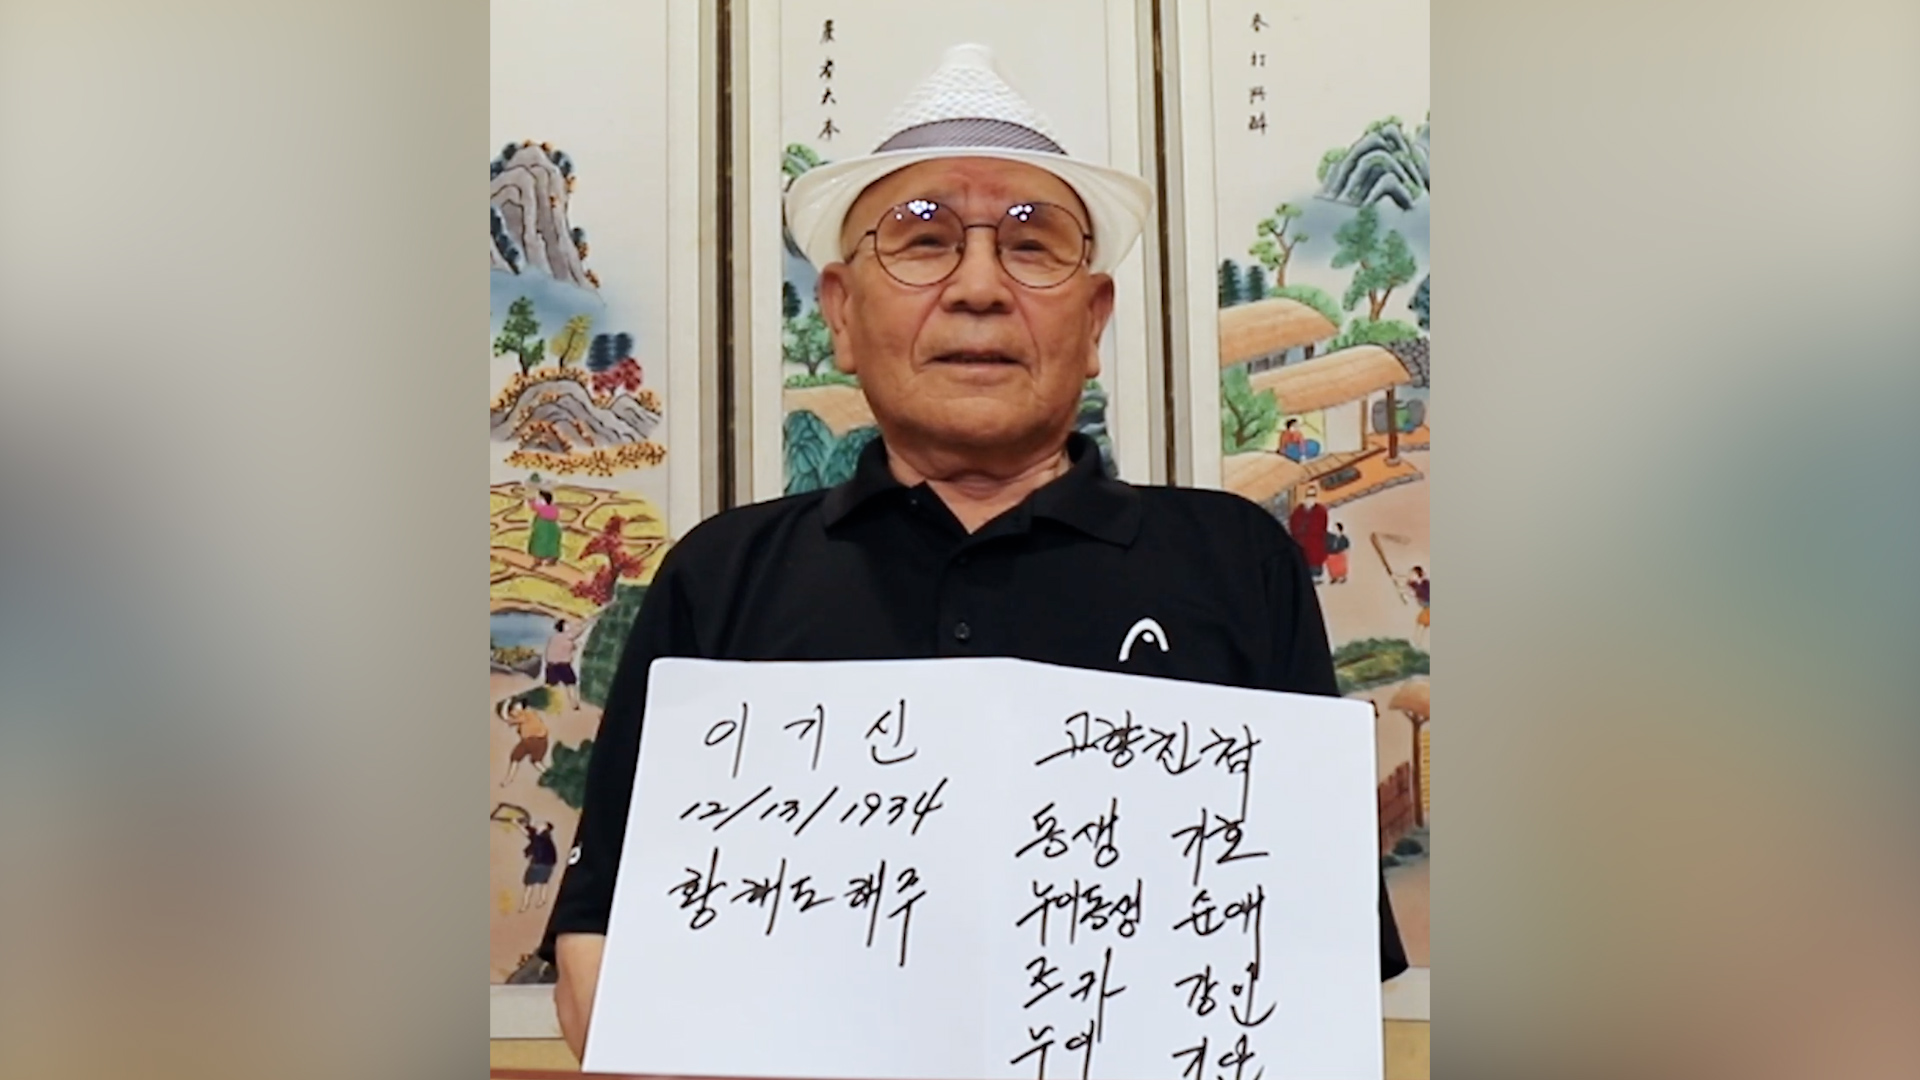 農者大本
이기신
12/13/1934
황해도 해주
고향친척
동생 기호
누이동생 순애
조카 강인
누이